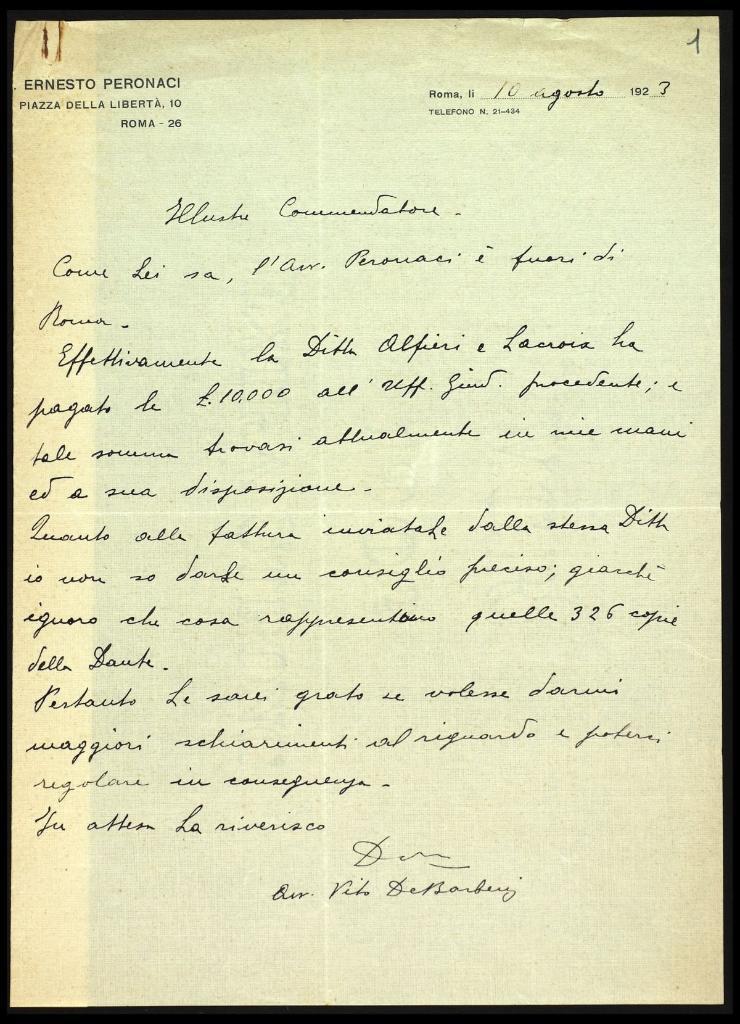 1
. ERNESTO PERONACI
PIAZZA DELLA LIBERTÀ, 10
ROMA - 26
Roma, li 10 agosto 1923
TELEFONO N. 21-434
Illustre Commendatore -
Come Lei sa, l'Avv. Peronaci è fuori di
Roma -
Effettivamente la Ditta Alfieri e Lacroix ha
pagato le £. 10.000 all'Uff. Giud. procedente; e
tale somma trovasi attualmente in mie mani
ed a sua disposizione -
Quanto alla fattura inviatale dalla stessa Ditta
io non so darle un consiglio preciso; giacchè
ignoro che cosa rappresentino quelle 326 copie
della Dante -
Pertanto Le sarei grato se volesse darmi
maggiori schiarimenti al riguardo e potersi
regolare in conseguenza -
In attesa La riverisco
Avv. Vito De Barberij